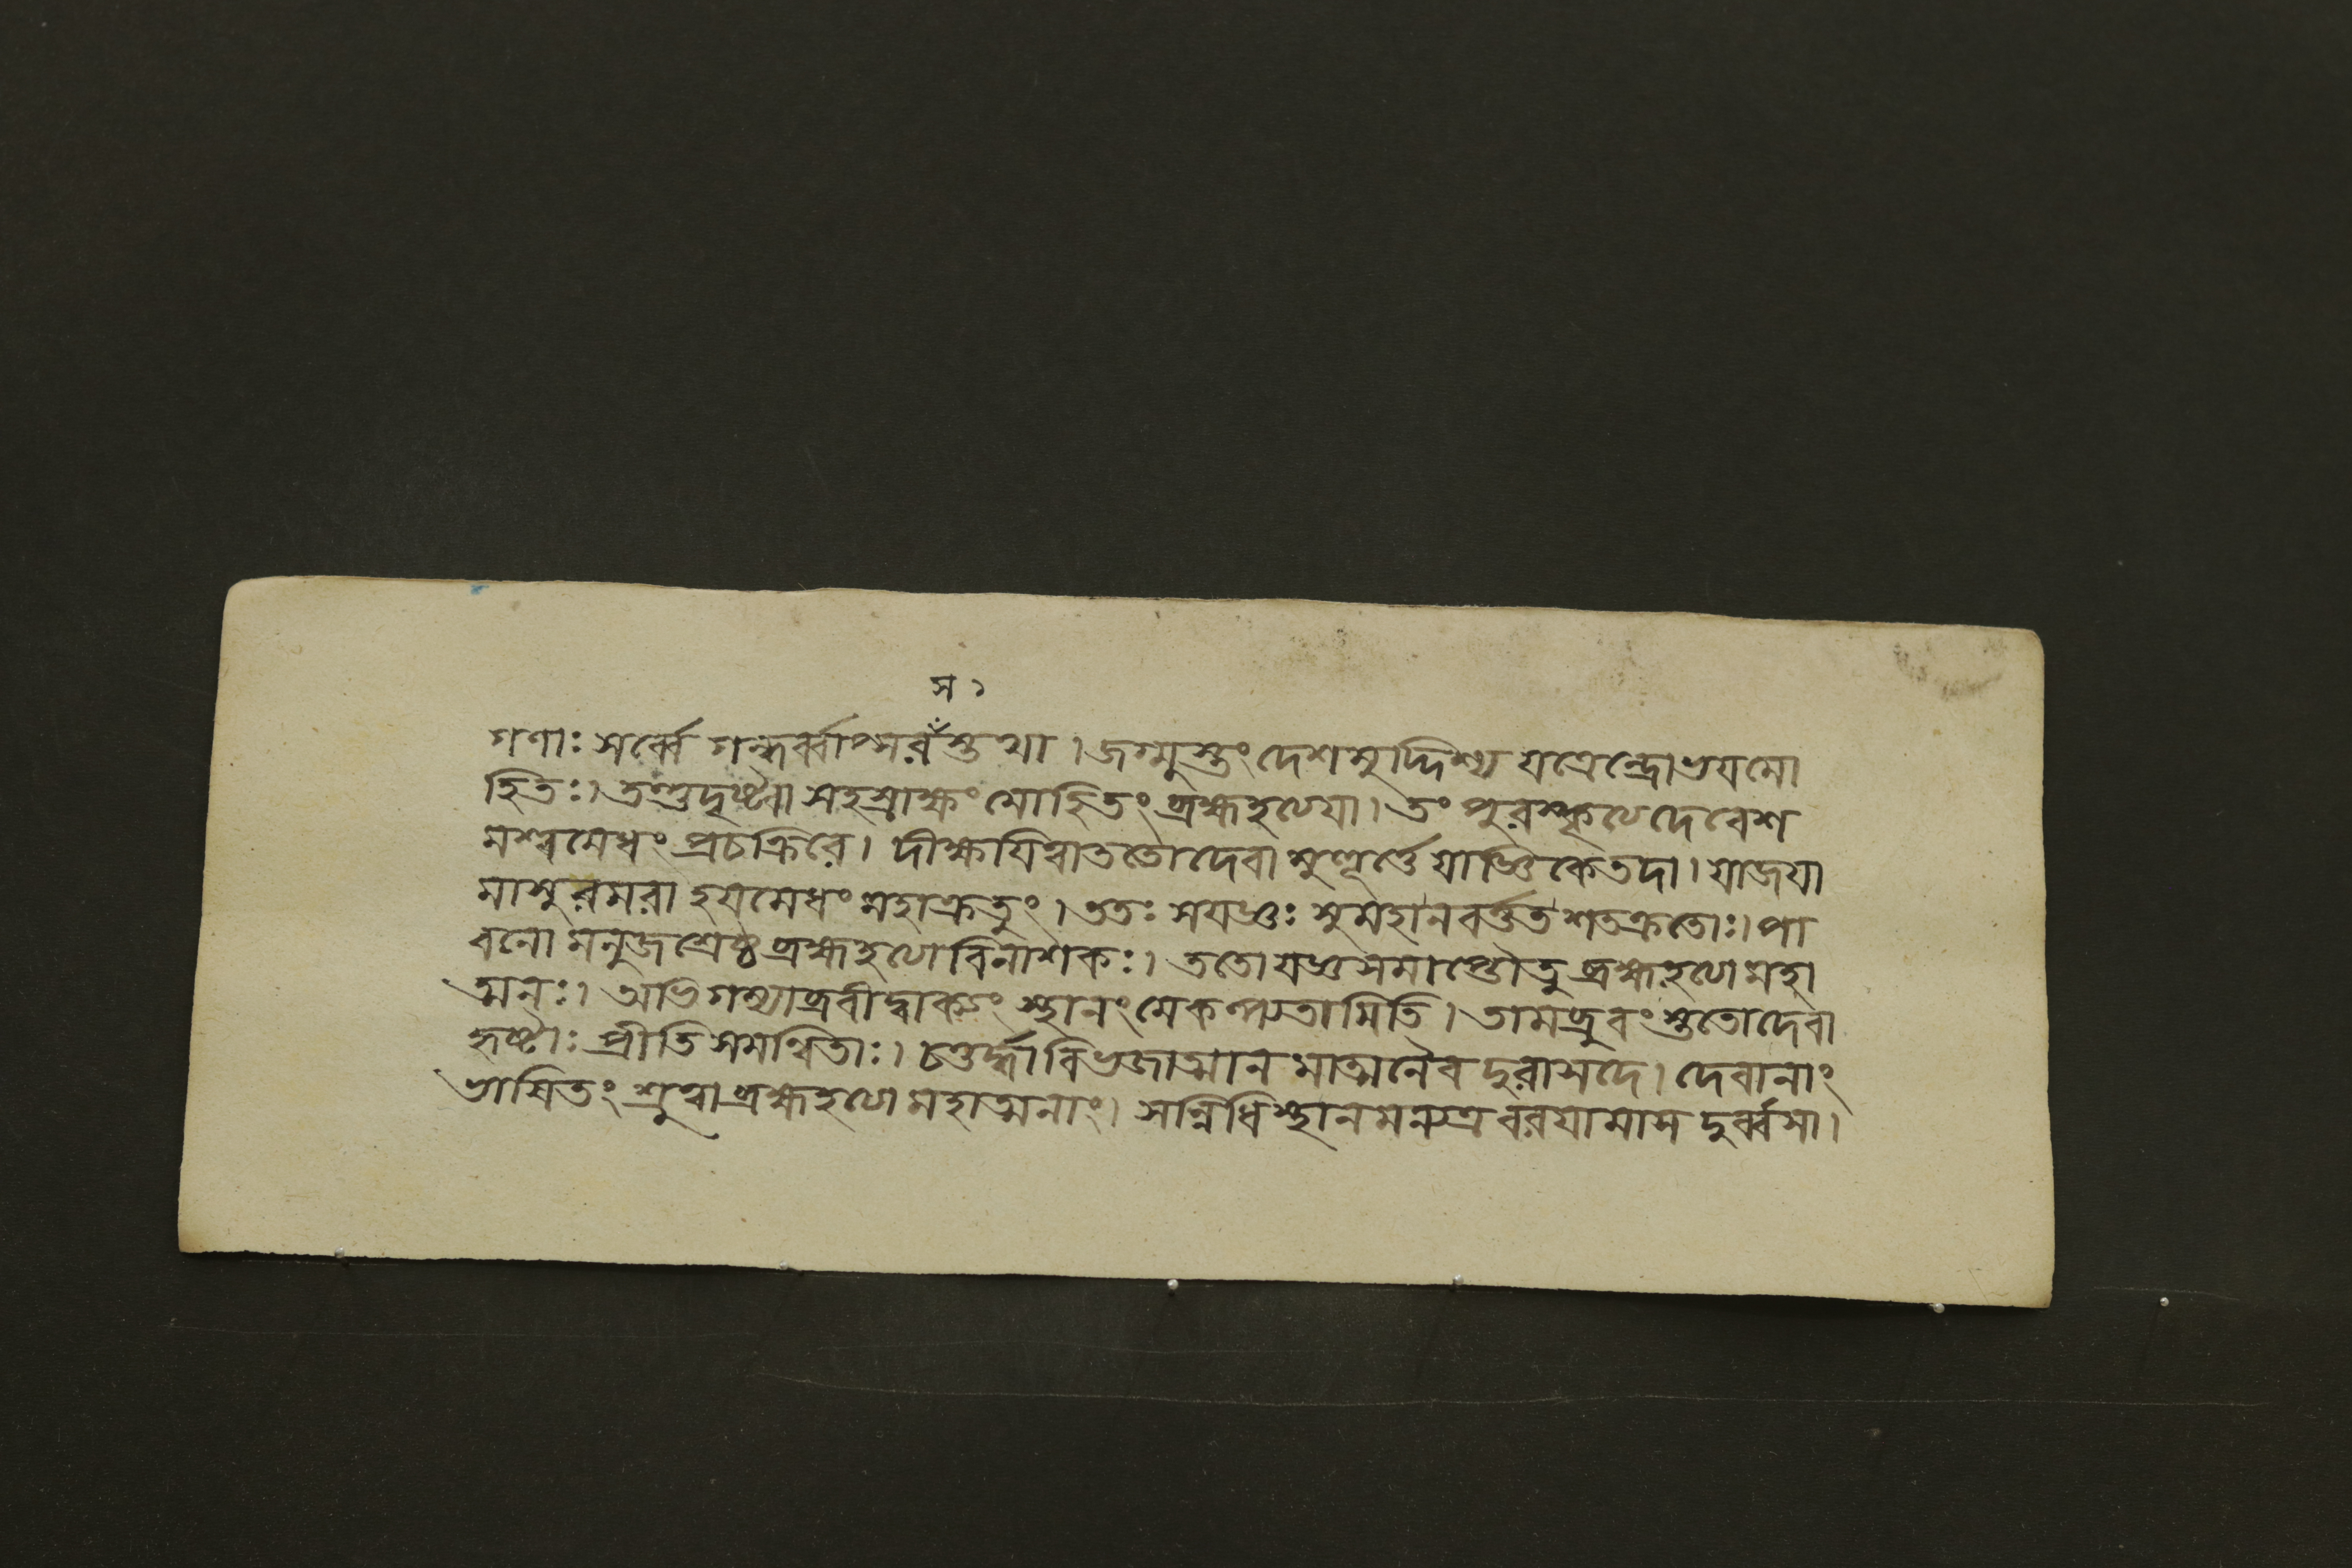 স ১
গণাঃ সর্ব্বে গন্ধর্ব্বাপ্সরস্তথা । জগ্মুস্তং দেশমুদ্দিশ্য যত্রেন্দ্রোভয়মো
হিতঃ। তন্তুদৃষ্ট্বা সহস্রাক্ষং মোহিতং ব্রহ্মহত্যয়া। তং পুরস্কৃত্যদেবেশ
মশ্বমেধং প্রচক্রিরে। দীক্ষয়িত্বাততোদেবা মুহূর্ত্তে যাজ্ঞিকেতদা। যাজয়া
মাসুরমরা হয়মেধং মহাক্রতুং। ততঃ সযজ্ঞঃ সুমহানবর্ত্ততশতক্রতোঃ। পা
বনো মনুজশ্রেষ্ঠ ব্রহ্মহত্যাবিনাশকঃ। ততোযজ্ঞসমাপ্তৌতু ব্রহ্মহত্যামহা
ত্মনঃ। অভিগম্যাব্রবীদ্বাক্যং স্থানংমেকল্প্যতামিতি। তামব্রুবংস্ততোদেবা
হৃষ্টাঃ প্রীতিসমন্বিতাঃ। চতুর্দ্ধাবিভজাত্মানমাত্মনৈবদুরাসদে। দেবানাং
ভাষিতং শ্রুত্বাব্রহ্মহত্যামহাত্মনাং। সন্নিধিস্থানমন্যত্রবরয়ামাস দুর্ব্বসা।